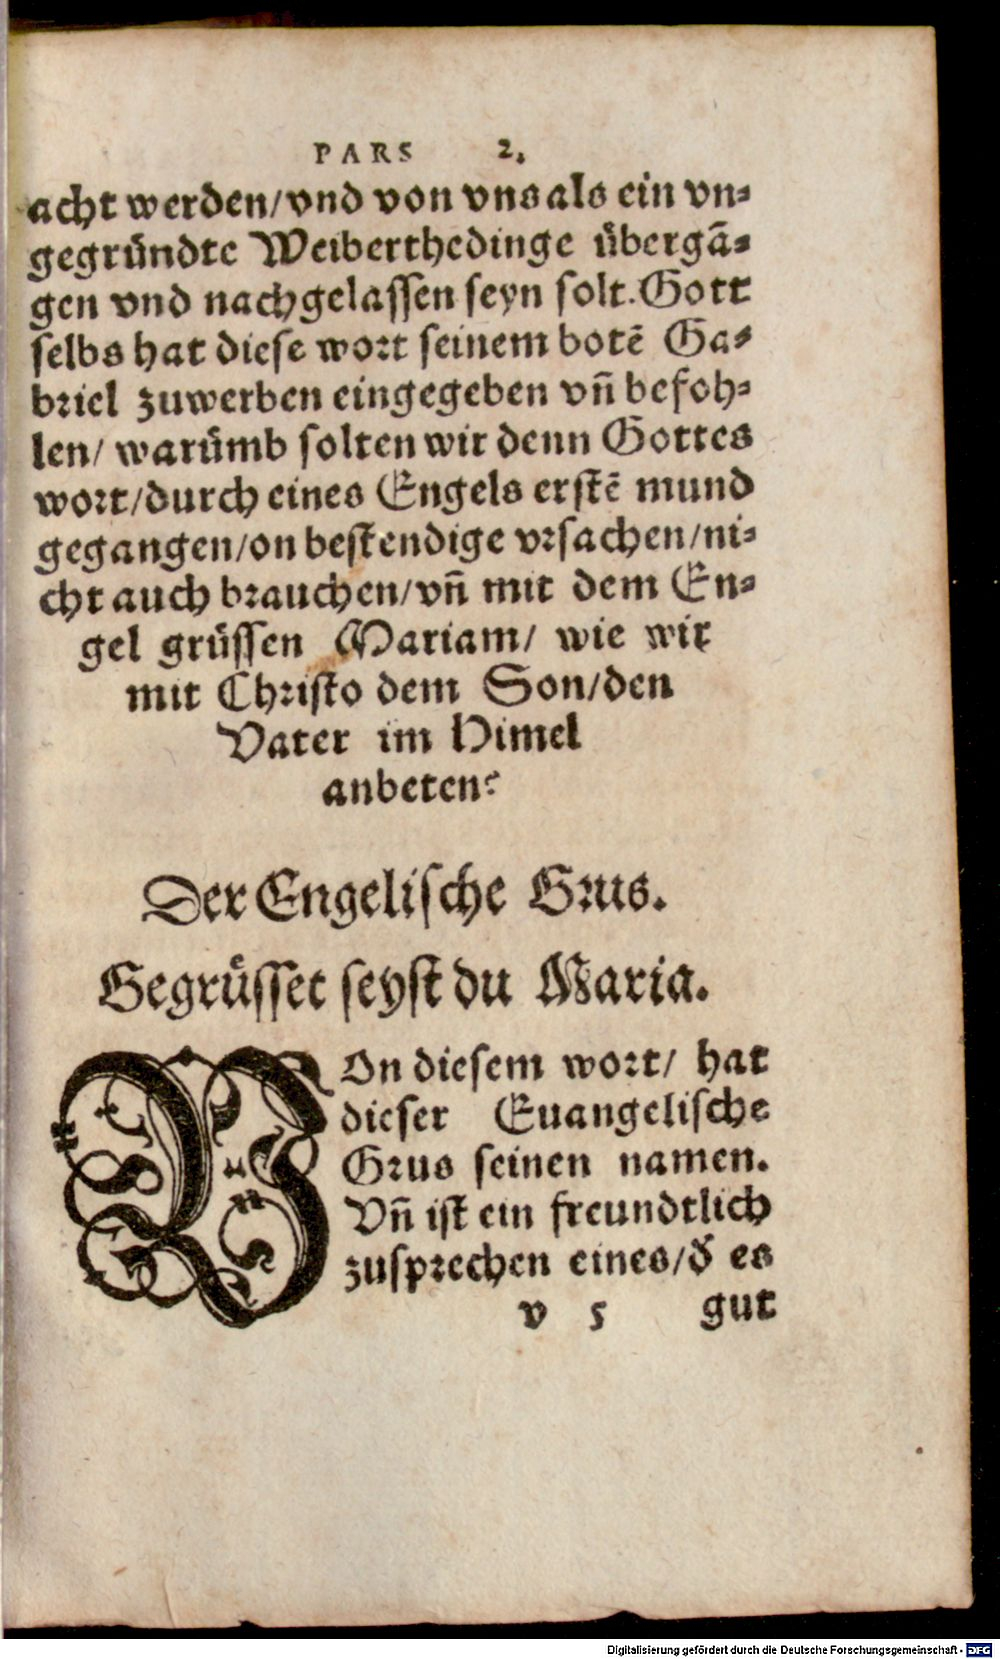 PARS 2.
acht werden/vnd von vns als ein vn-
gegründte Weiberthedinge übergā-
gen vnd nachgelassen seyn solt. Gott
selbs hat diese wort seinem botē Ga-
briel zuwerben eingegeben vñ befoh-
len/ warümb solten wir denn Gottes
wort/durch eines Engels erstē mund
gegangen/on bestendige vrsachen/ni-
cht auch brauchen/vñ mit dem En-
gel grüssen Mariam/ wie wir
mit Christo dem Son/den
Vater im Himel
anbeten?
Der Engelische Grus.
Gegrüsset seyst du Maria.
VOn diesem wort/ hat
dieser Euangelische
Grus seinen namen.
Vñ ist ein freundtlich
zusprechen eines/d̃ es
v 5 gut
Digitalisierung gefördert durch die Deutsche Forschungsgemeinschaft - DFG